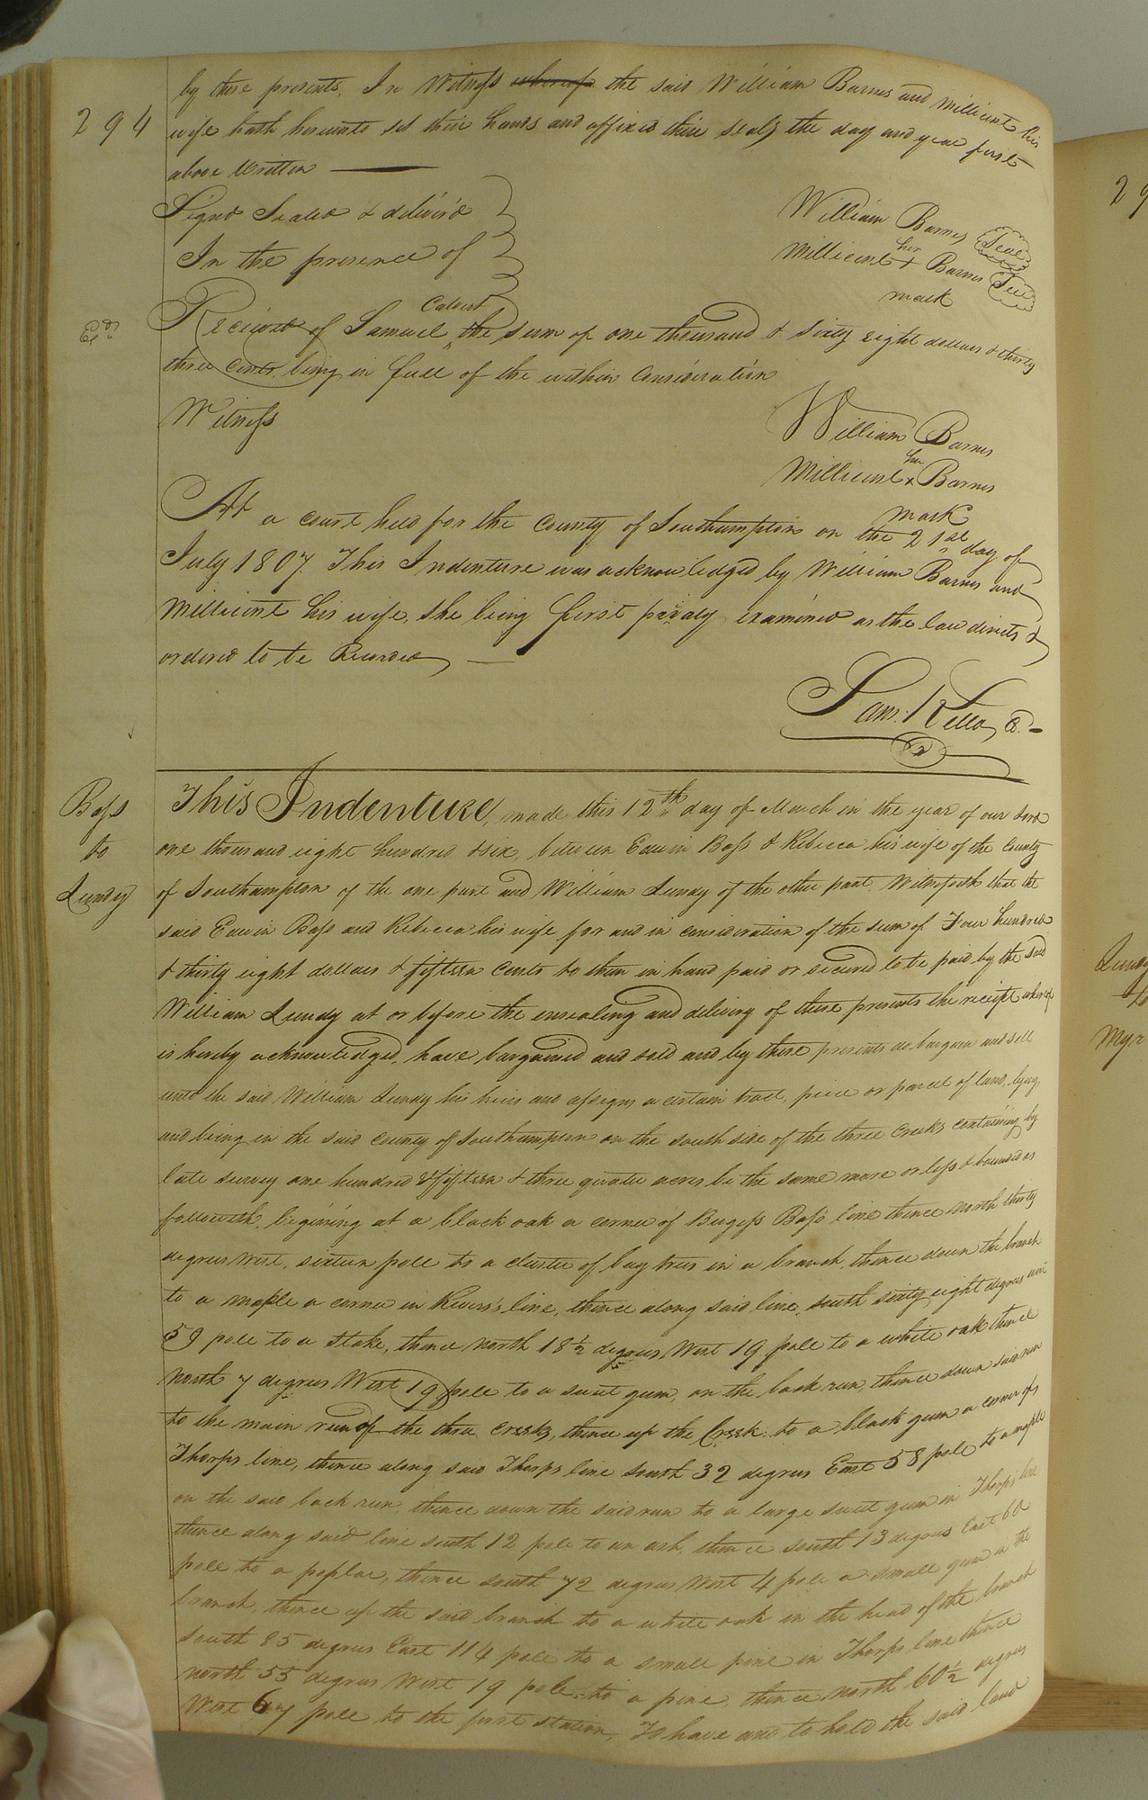 294
by these presents. In Witness whereof the said William Barnes and Millicent his
wife hath hereunto set their hands and affixed their seals the day and year first
above Written
Signd Sealed & deliver'd
In the presence of
William Barnes Seal
Millicent her + mark Barnes Seal
Recieved of Samuel Calvert the sum of one thousand & sixty eight dollars & thirty
three cents being in full of the within Consideration
Witness
William Barnes
Millicent her x mark Barnes
At a court held for the County of Southampton on the 21st day of
July 1807. This Indenture was acknowledged by William Barnes and
Millicent his wife, she being first privily examined as the law directs &
ordered to be Recorded
Sam: Kello
Bass
to
Lundy
This Indenture, made this 12th day of March in the year of our Lord
one thousand eight hundred & six, between Edwin Bass & Rebecca his wife of the County
of Southampton of the one part and William Lundy of the other part. Witnesseth that the
said Edwin Bass and Rebecca his wife for and in consideration of the sum of Four hundred
& thirty eight dollars & fifteen cents to them in hand paid or secured to be paid by the said
William Lundy at or before the ensealing and delivery of these presents the receipt whereof
is hereby acknowledged, have bargained and sold and by these presents do bargain and sell
unto the said William Lundy his heirs and assigns a certain tract, piece or parcel of land, lying
and being in the said county of Southampton on the south side of the three Creeks containing by
late survey one hundred & fifteen & three quarter acres be the same more or less & bounded as
followeth, begining at a black oak a corner of Burgess Bass's line thence North thirty
degrees West, sixteen pole to a cluster of bay trees in a branch, thence down the branch
to a maple a corner in line, thence along said line, south sixty eight degrees west
59 pole to a stake, thence north 18½ degrees West 19 pole to a white oak thence
North 7 degrees West 19 pole to a sweet gum, on the back run, thence down said run
to the main run of the three creeks, thence up the Creek to a black gum a corner of
Thorps line, thence along said Thorps line South 32 degrees East 58 pole to a maple
on the said back run, thence down the said run to a large sweet gum in Thorps line
thence along said line south 12 pole to an ash, thence south 13 degrees East 60
pole to a poplar, thence south 72 degrees West 4 pole a small gum in the
branch, thence up the said branch to a white oak in the head of the branch
South 85 degrees East 114 pole to a small pine in Thorps line thence
north 55 degrees West 19 pole to a pine, thence north 60½ degrees
West 67 pole to the first station, To have and to hold the said land